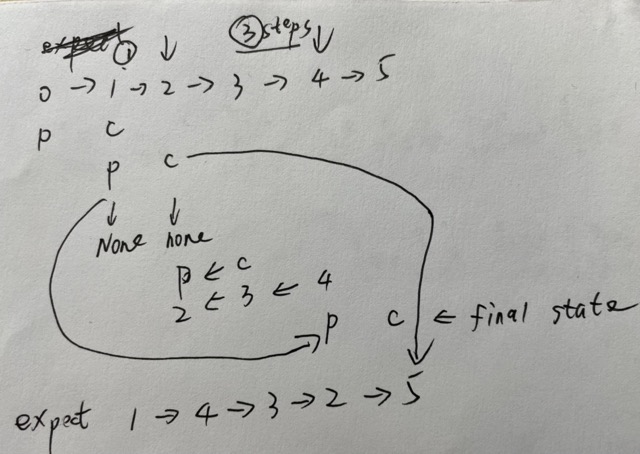 expect ① ↓ ③ steps ↓
0 → 1 → 2 → 3 → 4 → 5
p c
p c
↓ ↓
None none
p ← c
2 ← 3 ← 4
p c ← final state
expect 1 → 4 → 3 → 2 → 5